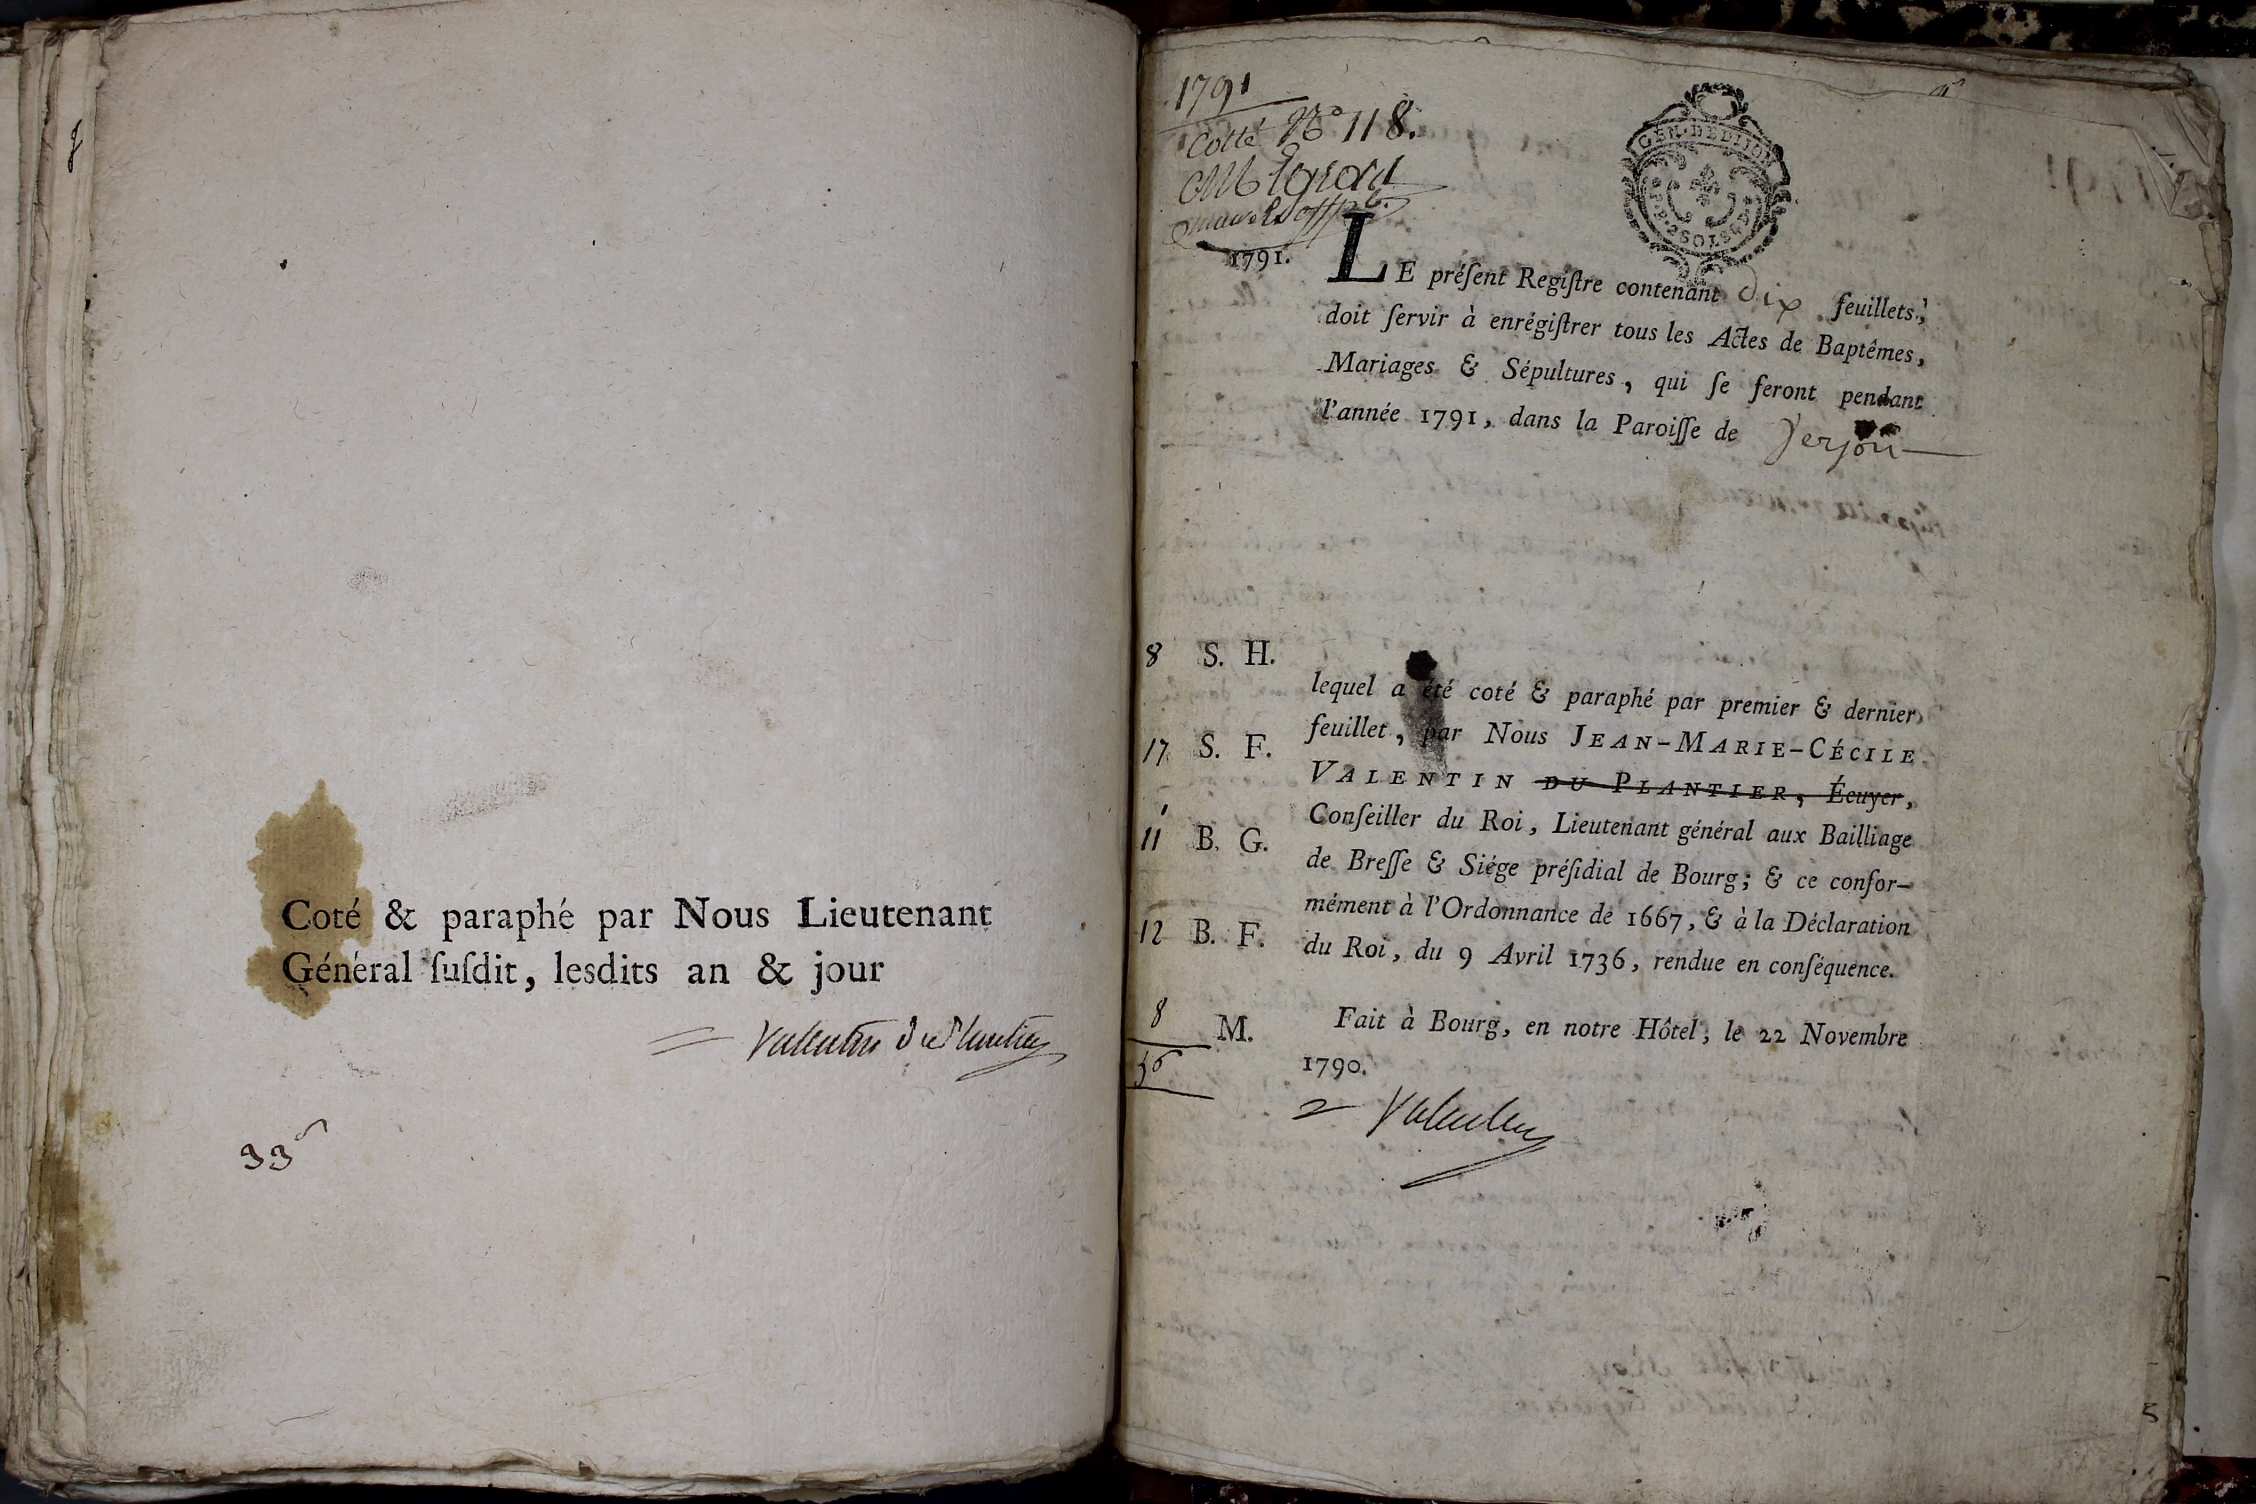 Coté & paraphé par Nous Lieutenant
Général ſuſdit, lesdits an & jour
Valentin du Plantier
33
1791
Cotté No 118.
1791.
GEN. DE DIJON
LE préſent Regiſtre contenant dix feuillets,
doit ſervir à enrégiſtrer tous les Actes de Baptêmes,
Mariages & Sépultures, qui ſe feront pendant
l'année 1791, dans la Paroiſſe de Verjon
8 S. H.
17 S. F.
1
11 B. G.
12 B. F.
8 M.
56
lequel a été coté & paraphé par premier & dernier
feuillet, par Nous JEAN-MARIE-CÉCILE
VALENTIN DU PLANTIER, Écuyer,
Conſeiller du Roi, Lieutenant général aux Bailliage
de Breſſe & Siége préſidial de Bourg; & ce confor-
mément à l'Ordonnance de 1667, & à la Déclaration
du Roi, du 9 Avril 1736, rendue en conſéquence.
Fait à Bourg, en notre Hôtel, le 22 Novembre
1790.
Valentin
5